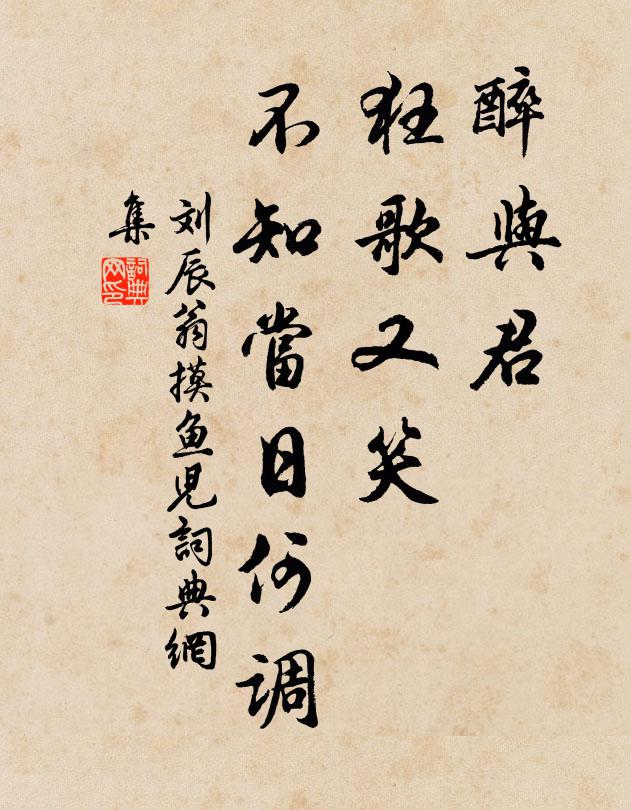 醉與君
狂歌又笑
不知當日何調
刘辰翁摸鱼児詞典網
集
詞典
网印